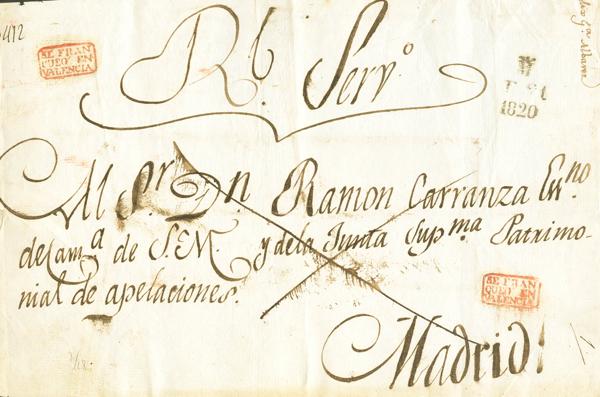 SE FRAN
QUEO EN
VALENCIA
Rl. Servo.
1820
Al Sr. Dn. Ramon Carranza Essno.
de Cama de S. M. y de la Junta Supma Patrimo-
nial de apelaciones.
SE FRAN
QUEO EN
VALENCIA
Madrid.